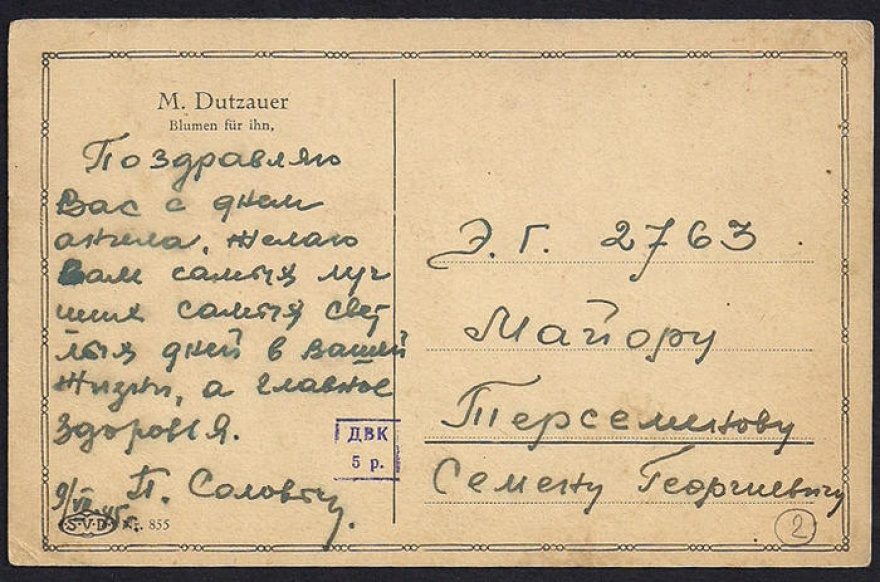 M. Dutzauer
Blumen für ihn,
Поздравляю
Вас с днем
ангела, желаю
Вам самых луч
ших самых свет
лых дней в вашей
жизни, а главное
здоровья.
П. Соловьу.
9/VII 45 г.
S·V·D Nr. 855
ДВК
5 р.
Э. Г. 2763.
Майору
Терсеминову
Семену Георгиевичу
2